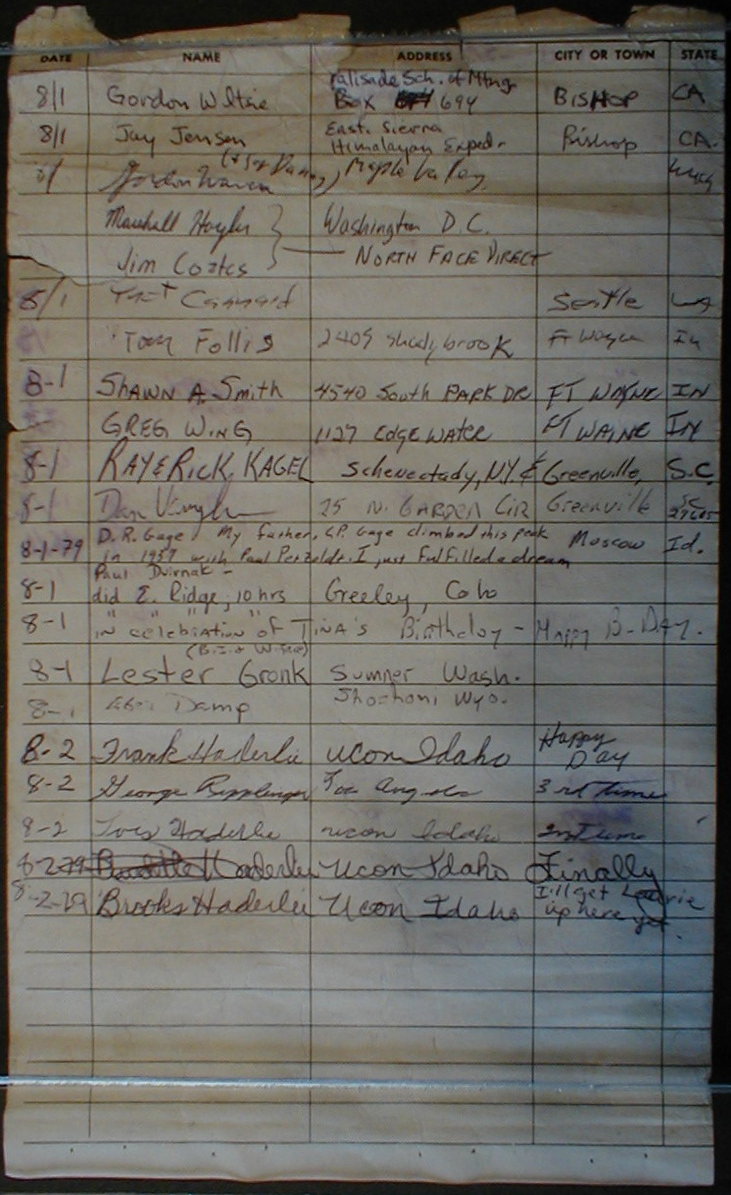 DATE NAME ADDRESS CITY OR TOWN STATE
Palisade Sch. of Mtng
8/1 Gordon Wiltsie Box 694 BISHOP CA
8/1 Jay Jensen East. Sierra Himalayan Exped. Bishop CA.
Gordon Maple Valley Wash
Marshall Washington D.C.
Jim Coates NORTH FACE DIRECT
8/1 Cannard Seattle WA
Tom Follis 2409 Shadybrook Ft Wayne In
8-1 SHAWN A. Smith 4540 South PARK DR FT WAYNE IN
GREG WING 1127 EDGEWATER FT WAINE IN
8-1 RAY & RICK KAGEL Schenectady, NY. & Greenville, S.C.
8-1 Dan 25 N. GARDEN CIR Greenville SC
8-1-79 D.R. Gage My father, G.P. Gage climbed this peak Moscow Id.
in 1937 with Paul Petzoldt. I just fulfilled a dream
Paul Dvirnak -
8-1 did E. Ridge, 10 hrs Greeley, Colo
8-1 " " " "
IN celebration of TINA'S Birthday - Happy B-DAY.
8-1 Lester Gronk Sumner Wash.
8-1 Damp Shoshoni Wyo.
8-2 Frank Haderlie Ucon Idaho Happy Day
8-2 George Ripplinger Los Angeles 3rd time
8-2 Haderlie Ucon Idaho 2nd time
8-2-79 Haderlie Ucon Idaho Finally
8-2-79 Brooks Haderlie Ucon Idaho I'll get Laurie
up here yet.